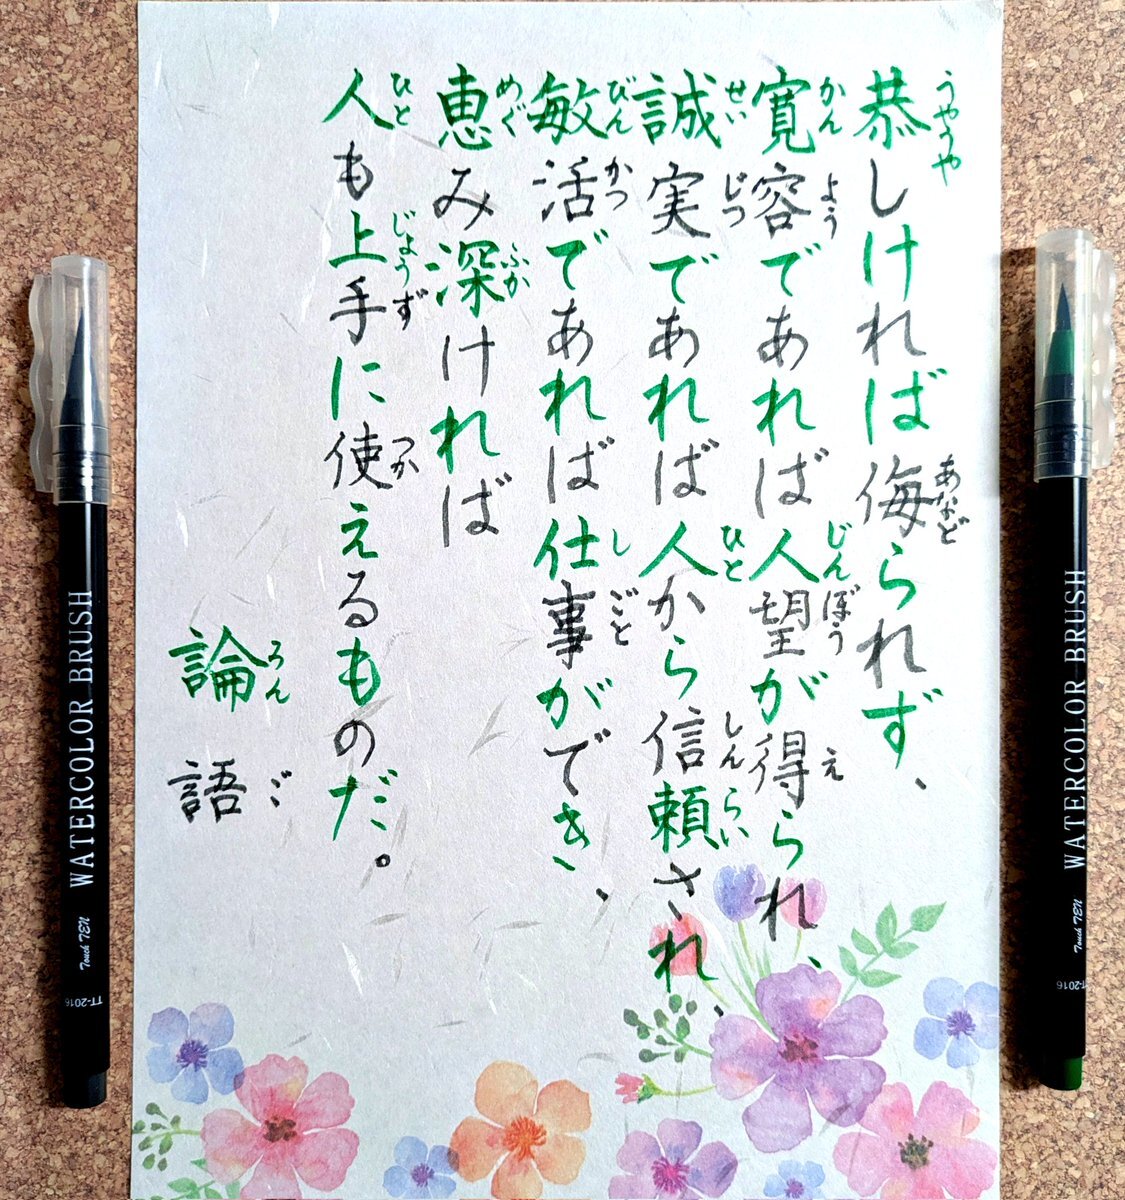 恭しければ侮られず、
うやうや
あなど
寛容であれば人望が得られ、
かんよう
じんぼう
え
誠実であれば人から信頼され、
せいじつ
ひと
しんらい
敏活であれば仕事ができ、
びんかつ
しごと
恵み深ければ
めぐ
ふか
人も上手に使えるものだ。
ひと
じょうず
つか
論語
ろんご
WATERCOLOR BRUSH
Touch TEN
TT-2016
WATERCOLOR BRUSH
Touch TEN
TT-2016